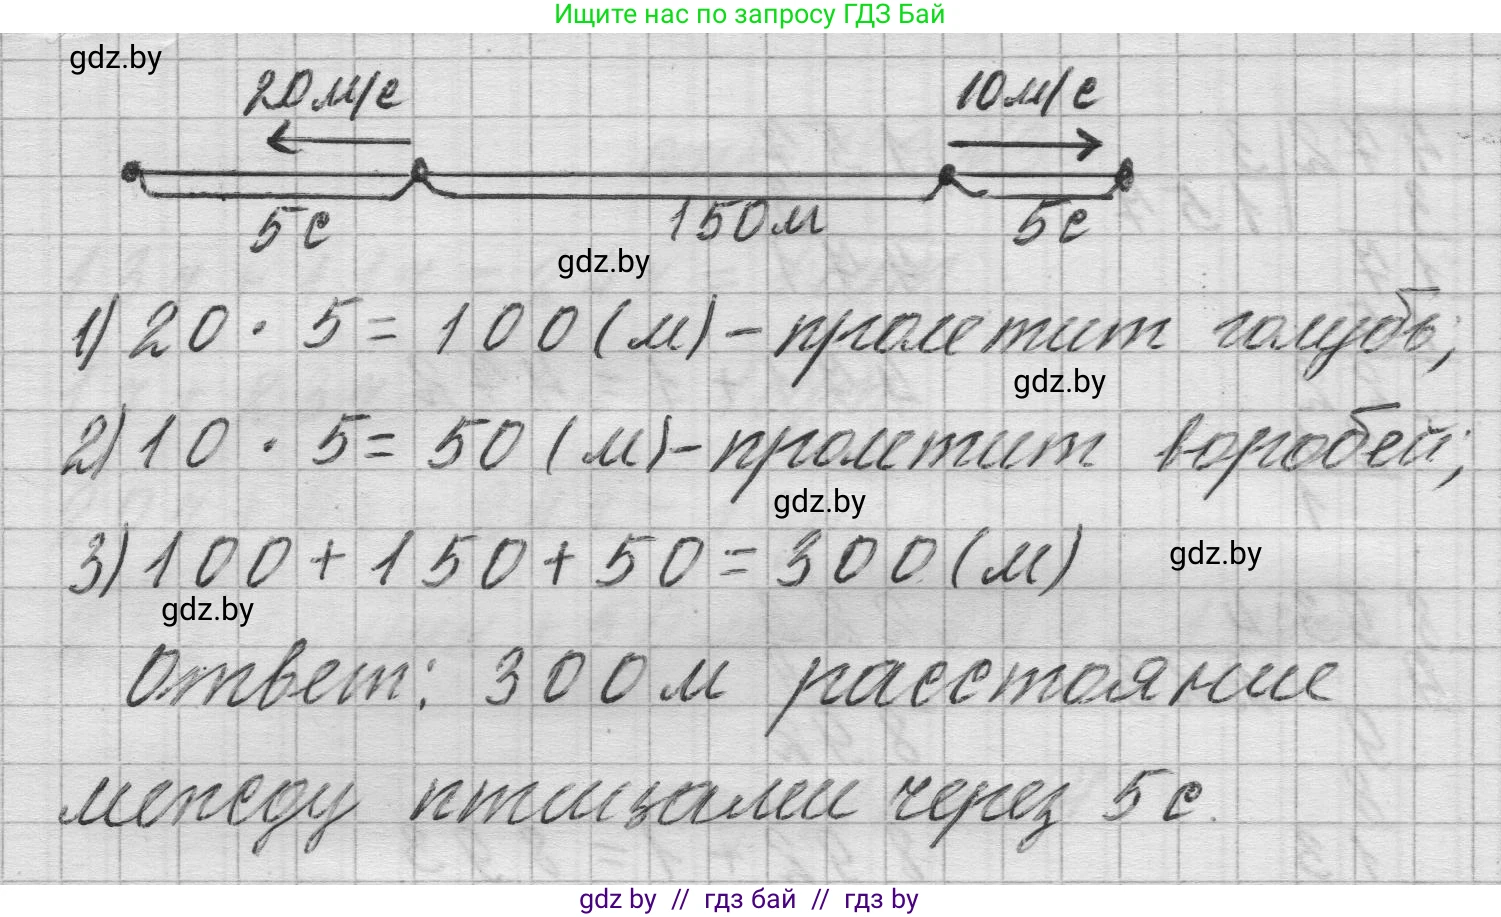 Ищите нас по запросу ГДЗ Бай
gdz.by
20м/с 10м/с
5с 150м 5с
gdz.by
1) 20 · 5 = 100 (м) – пролетит голубь;
gdz.by
2) 10 · 5 = 50 (м) – пролетит воробей;
gdz.by
3) 100 + 150 + 50 = 300 (м)
gdz.by
gdz.by
Ответ: 300 м расстояние
между птицами через 5 с.
gdz.by // гдз бай // гдз by